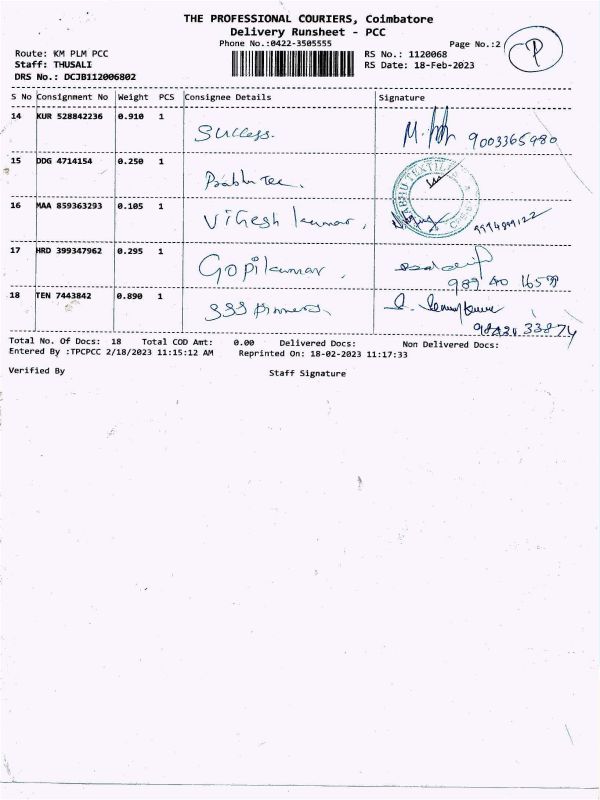 THE PROFESSIONAL COURIERS, Coimbatore
Delivery Runsheet - PCC
Phone No.:0422-3505555
Page No.:2
P
Route: KM PLM PCC
RS No.: 1120068
Staff: THUSALI
RS Date: 18-Feb-2023
DRS No.: DCJB112006802
S No Consignment No Weight PCS Consignee Details Signature
14 KUR 528842236 0.910 1 Success. 9003365980
15 DDG 4714154 0.250 1 Prabhu Tex.
16 MAA 859363293 0.105 1 Vignesh kumar,
17 HRD 399347962 0.295 1 Gopikumar,
18 TEN 7443842 0.890 1 SSS
Total No. Of Docs: 18 Total COD Amt: 0.00 Delivered Docs: Non Delivered Docs:
Entered By :TPCPCC 2/18/2023 11:15:12 AM Reprinted On: 18-02-2023 11:17:33
Verified By Staff Signature